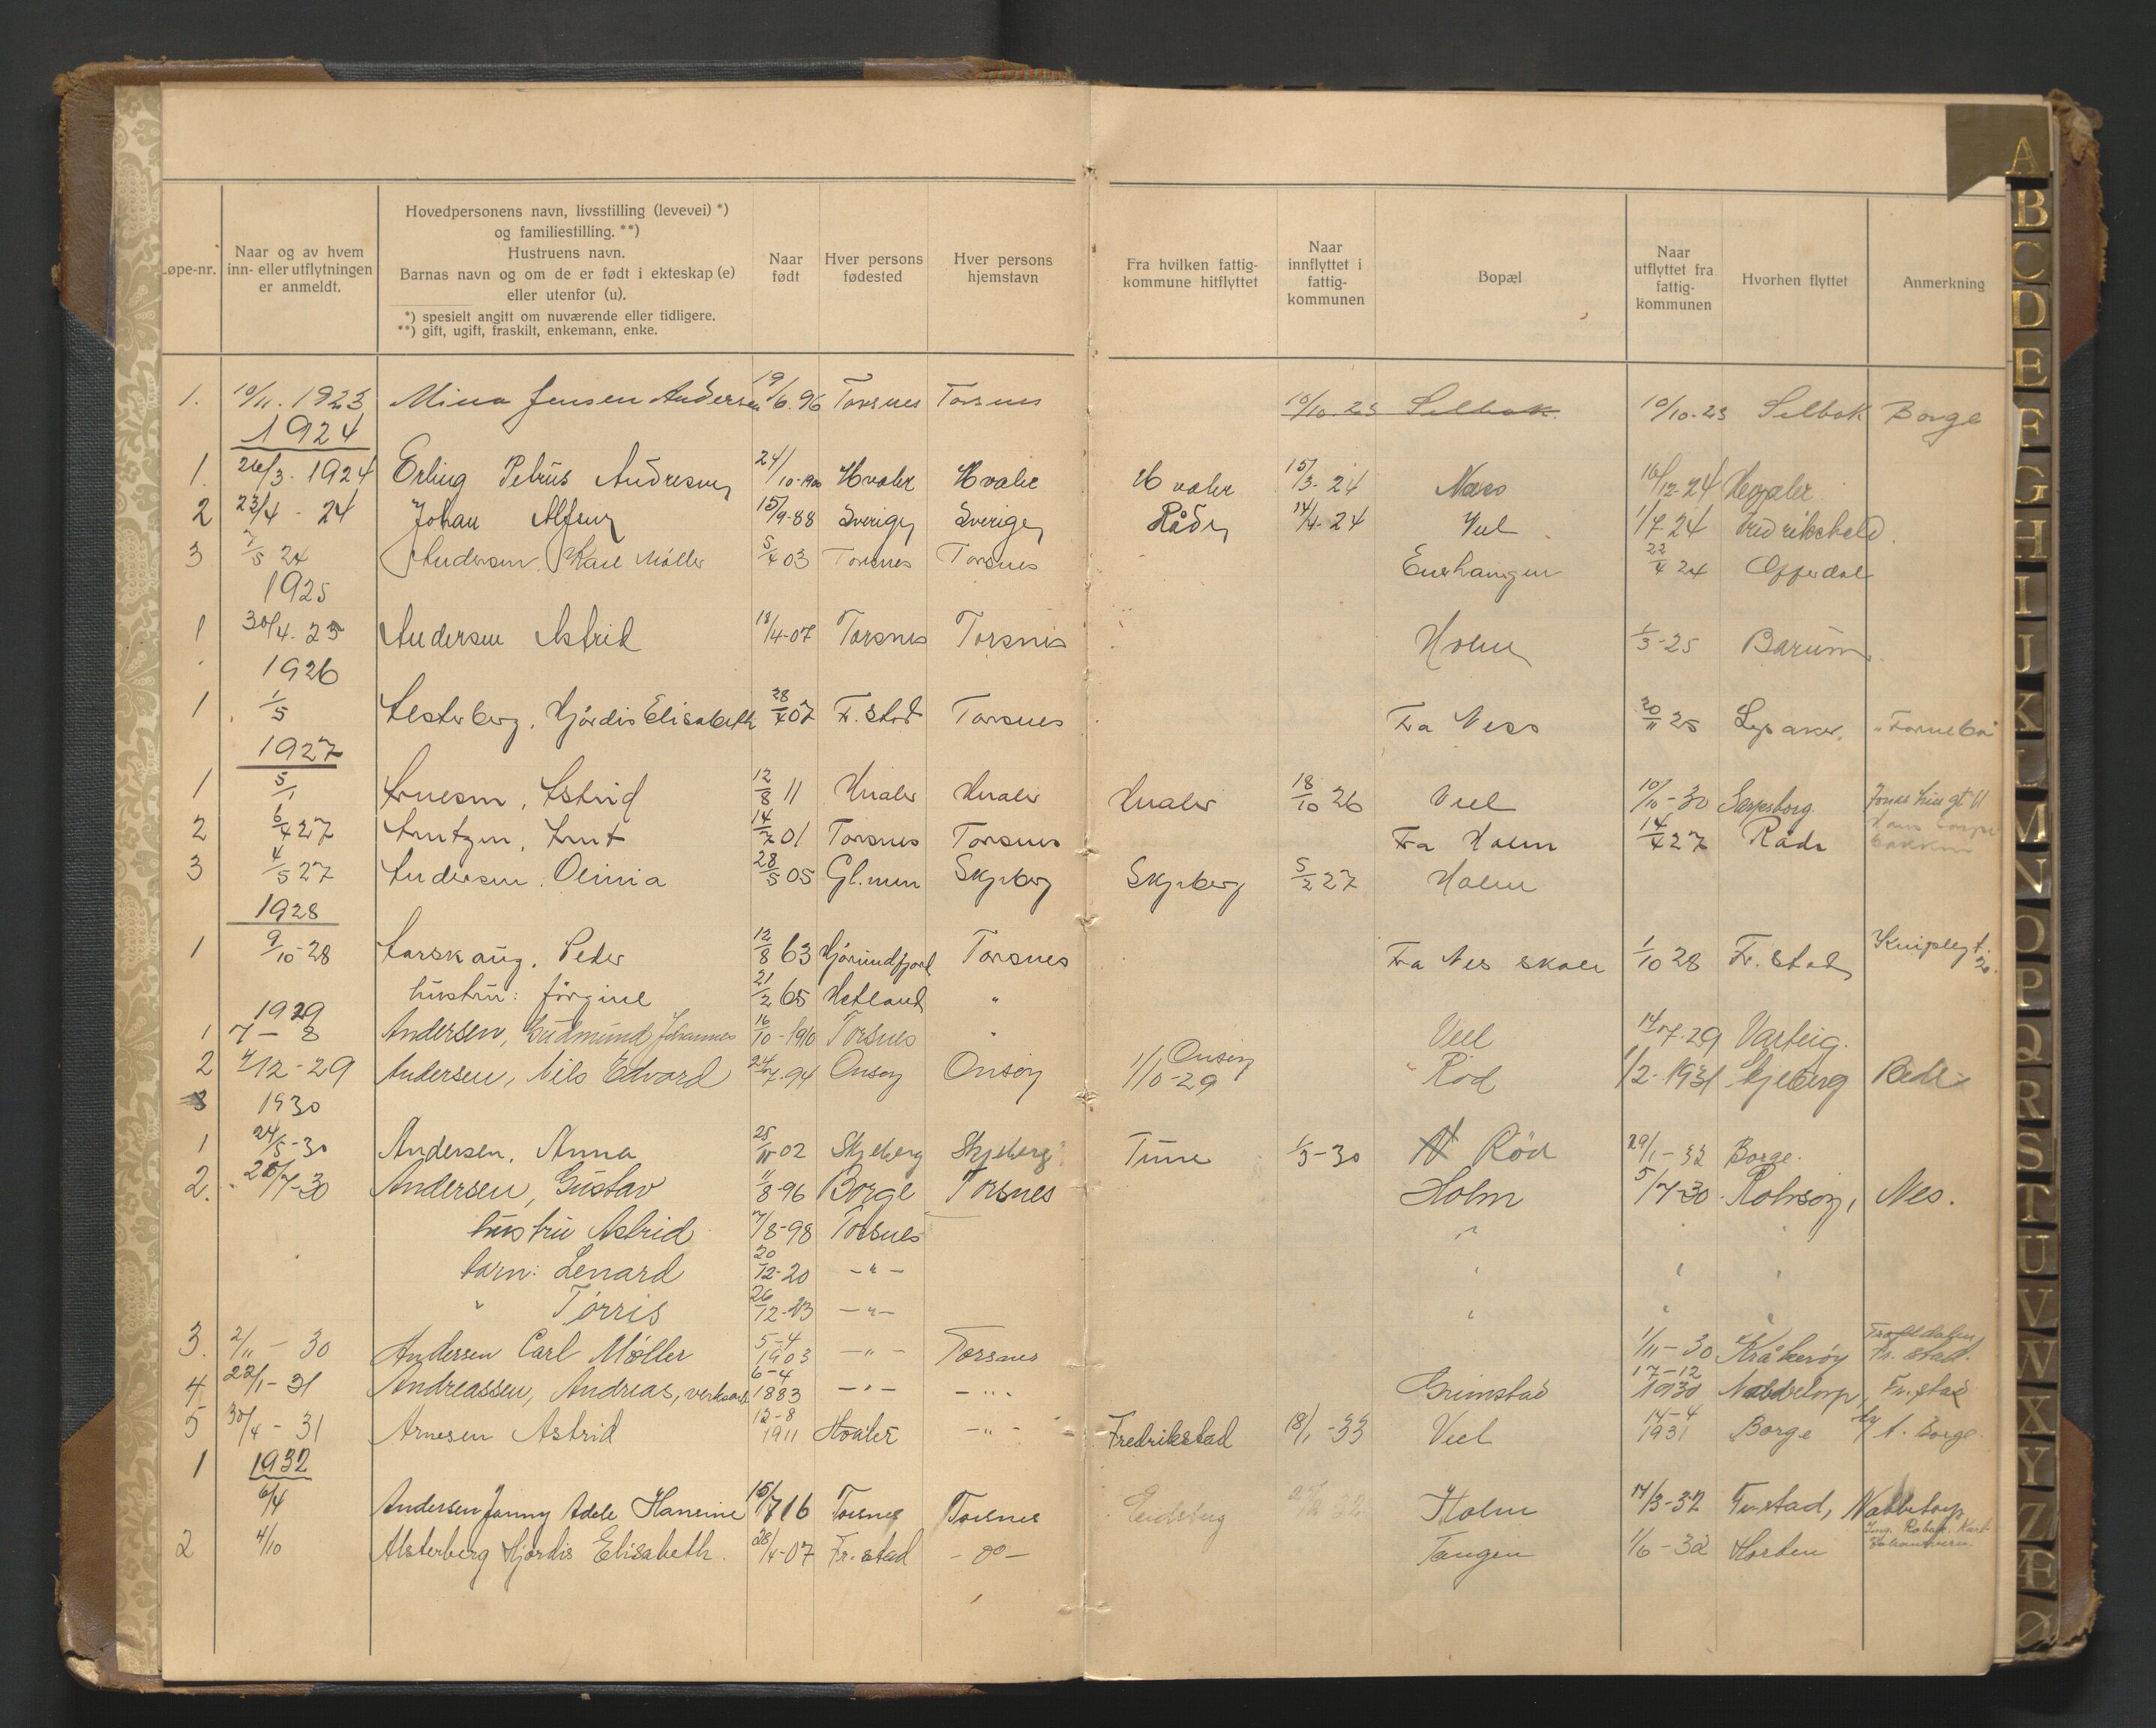 Løpe-nr.
Naar og av hvem inn- eller utflytningen er anmeldt.
Hovedpersonens navn, livsstilling (levevei) *) og familiestilling. **)
Hustruens navn.
Barnas navn og om de er født i ekteskap (e) eller utenfor (u).
*) spesielt angitt om nuværende eller tidligere.
**) gift, ugift, fraskilt, enkemann, enke.
Naar født
Hver persons fødested
Hver persons hjemstavn
Fra hvilken fattig-kommune hitflyttet
Naar innflyttet i fattig-kommunen
Bopæl
Naar utflyttet fra fattig-kommunen
Hvorhen flyttet
Anmerkning
1. 10/11. 1923 Mina Jensen Andersen 19/6.96 Torsnes Torsnes 10/10.23 Selbak 10/10.23 Selbak Borge
1924
1. 26/3. 1924 Erling Petrus Andresen 24/10-1900 Hvaler Hvaler Hvaler 15/3-24 Næss 16/12-24 Hvaler
2 23/4 - 24 Johan Alfsen 15/9-88 Sverige Sverige Råde 14/4-24 Vel 1/7 24 Fredrikshald.
3 7/5 24 Andersen Karl Møller 5/4 03 Torsnes Torsnes Enerhaugen 22/4 24 Offerdal
1925
1 30/4. 25 Andersen Astrid 18/4-07 Torsnes Torsnes Holm 1/3-25 Bærum.
1926
1 1/5 Alsterberg, Hjørdis Elisabeth 28/4 07 F. stad Torsnes Fra Ness 20/11 25 Lysaker. "Fornebo"
1927
1 5/1 Arnesen, Astrid 12/8 11 Hvaler Hvaler Hvaler 18/10 26 Veel 10/10-30 Sarpsborg. Jonas Lies gt 11
2 6/4 27 Arntzen, Arnt 14/7 01 Torsnes Torsnes Fra Holm 14/4 27 Råde
3 4/5 27 Andersen. Olinia 28/5 05 Gl.men Skjeberg Skjeberg 5/2 27 Holm
1928
1 9/10-28 Aarskaug, Peder 12/8 63 Hjørundfjord Torsnes Fra Nes skole 1/10 28 Fr. stad
hustru: Jørgine 21/2 65 Hetland "
1929
1 7 - 8 Andersen, Gudmund Johannes 16/10-1910 Torsnes " Veel 14/7.29 Varteig.
2 4/12-29 Andersen, Nils Edvard 24/7.94 Onsøy Onsøy Onsøy 1/10-29 Rød 1/2-1931 Skjeberg
3 1930
1 24/5-30 Andersen, Anna 25/11 02 Skjeberg Skjeberg Tune 1/5-30 N Rød 29/1-32 Borge.
2. 25/7-30 Andersen, Gustav 11/8-96 Borge Torsnes Holm 5/7-30 Rolvsøy, Nes.
hustru Astrid 7/8-98 Torsnes "
barn: Lenard 20/12-20 - " - " " "
" Torris 26/12-23 - " - " " "
3. 2/11 - 30 Andersen Carl Møller 5-4 1903 - " - Torsnes 1/11-30 Kråkerøy Trosvikdalen Fr. stad.
4 22/1-31 Andreassen, Andreas, verksarb 6-4 1883 - " - - " - Grimstad 17-12 1930 Nabbetorp, Fr.stad
5 30/4 - 31 Arnesen Astrid 12-8 1911 Hvaler - " - Fredrikstad 18/1-33 Veel 14-4 1931 Borge
1 1932
6/4 Andersen Jenny Adele Hansine 15/7 16 Torsnes Torsnes Holm 14/3-32 Fr.stad, Nabbetorp
2 4/10 Alsterberg Hjørdis Elisabeth. 28/4-07 Fr. stad - " - Tangen 1/6-32 Horten
A
B
C
D
E
F
G
H
I
J
K
L
M
N
O
P
Q
R
S
T
U
V
W
X
Y
Z
Æ
Ø